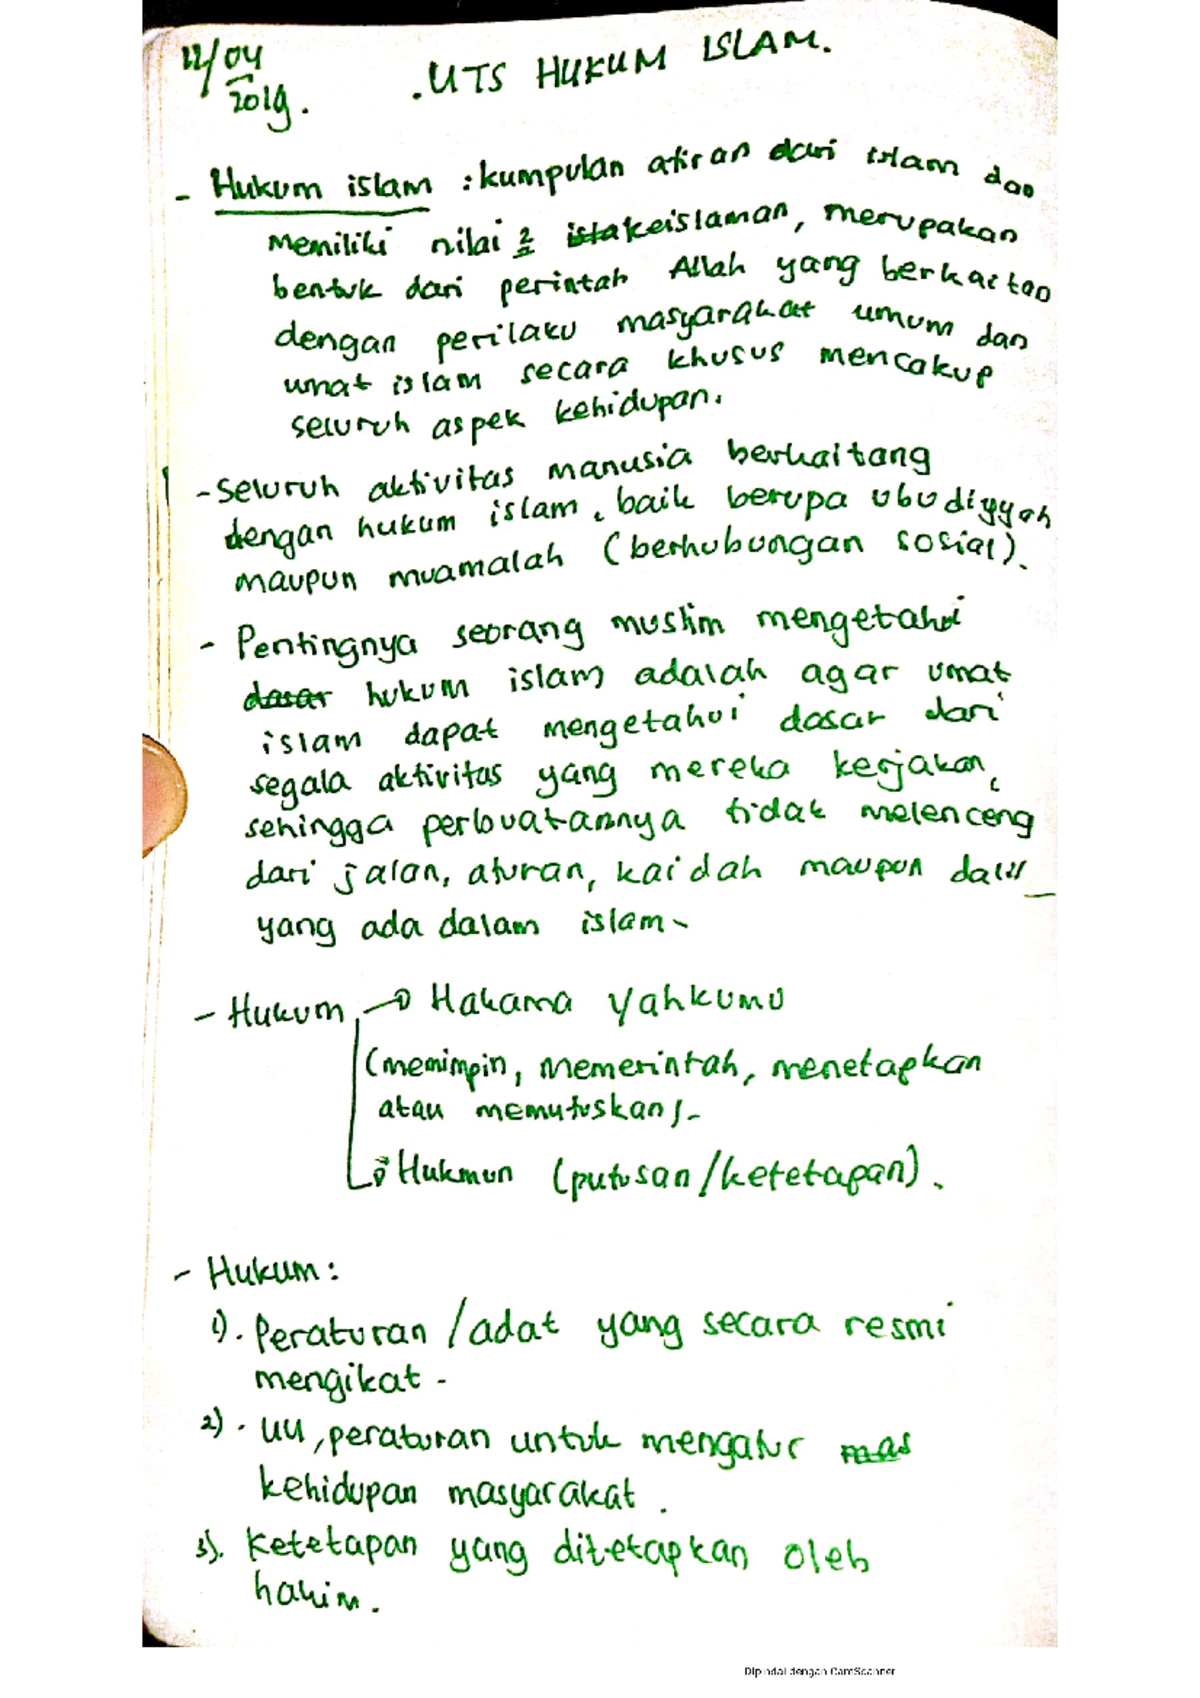 12/04
2019.
. UTS HUKUM ISLAM.
- Hukum islam : kumpulan atiran dari islam dan
memiliki nilai 2 ista keislaman, merupakan
bentuk dari perintah Allah yang berkaitan
dengan perilaku masyarakat umum dan
umat islam secara khusus mencakup
seluruh aspek kehidupan.
- Seluruh aktivitas manusia berkaitang
dengan hukum islam, baik berupa ubudiyyah
maupun muamalah (berhubungan sosial).
- Pentingnya seorang muslim mengetahui
dasar hukum islam adalah agar umat
islam dapat mengetahui dasar dari
segala aktivitas yang mereka kerjakan,
sehingga perbuatannya tidak melenceng
dari jalan, aturan, kaidah maupun dalil
yang ada dalam islam.
- Hukum → Hakama yahkumu
(memimpin, memerintah, menetapkan
atau memutuskan).
→ Hukmun (putusan/ketetapan).
- Hukum:
1). Peraturan / adat yang secara resmi
mengikat -
2). UU, peraturan untuk mengatur mas
kehidupan masyarakat.
3). Ketetapan yang ditetapkan oleh
hakim.
Dipindai dengan CamScanner